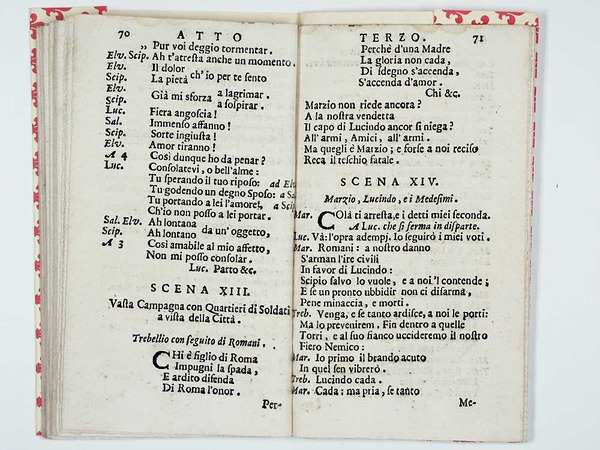 70 ATTO
„ Pur voi deggio tormentar.
Elv. Scip. Ah t'attesta anche un momento.
Elv. Il dolor
Scip. La pietà ch'io per te sento
Elv. Già mi sforza a lagrimar.
Scip. a sospirar.
Luc. Fiera angoscia!
Sal. Immenso affanno!
Scip. Sorte ingiusta!
Elv. Amor tiranno!
A 4 Così dunque ho da penar?
Luc. Consolatevi, o bell'alme:
Tu sperando il tuo riposo: ad Elv
Tu godendo un degno Sposo: a Sa
Tu portando a lei l'amore, a Scip
Ch'io non posso a lei portar.
Sal. Elv. Ah lontana
Scip. Ah lontano da un'oggetto,
A 3 Così amabile al mio affetto,
Non mi posso consolàr.
Luc. Parto &c.
SCENA XIII.
Vasta Campagna con Quartieri di Soldati
a vista della Città.
Trebellio con seguito di Romani.
CHi è figlio di Roma
Impugni la spada,
E ardito difenda
Di Roma l'onor.
Per-
TERZO. 71
Perchè d'una Madre
La gloria non cada,
Di sdegno s'accenda,
S'accenda d'amor.
Chi &c.
Marzio non riede ancora?
A la nostra vendetta
Il capo di Lucindo ancor si niega?
All'armi, Amici, all'armi.
Ma quegli è Marzio; e forse a noi reciso
Reca il teschio fatale.
SCENA XIV.
Marzio, Lucindo, e i Medesimi.
Mar. COlà ti arresta, e i detti miei seconda.
A Luc. che si ferma in disparte.
Luc. Và: l'opra adempj. Io seguirò i miei voti.
Mar. Romani: a nostro danno
S'arman l'ire civili
In favor di Lucindo:
Scipio salvo lo vuole, e a noi'l contende;
E se un pronto ubbidir non ci disarma,
Pene minaccia, e morti.
Treb. Venga, e se tanto ardisce, a noi le porti:
Ma lo prevenirem. Fin dentro a quelle
Torri, e al suo fianco uccideremo il nostro
Fiero Nemico:
Mar. Io primo il brando acuto
In quel sen vibrerò.
Treb. Lucindo cada.
Mar. Cada: ma pria, se tanto
Me-